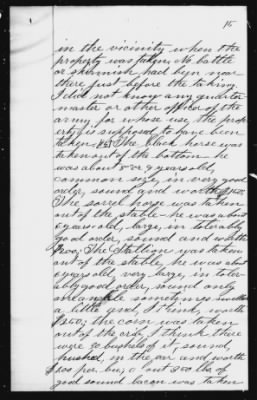 15
in the vicinity when the
property was taken, No battle
or skirmish had been near
there just before the taking.
I did not know any quarter
master or other officer of the
army for whose use the prop
erty is supposed to have been
taken. The black horse was
taken out of the bottom he
was about 8 or 9 years old,
common size, in very good
order, sound and worth
The sorrel horse was taken
out of the stable - he was about
6 years old, large, in tolerably
good order, sound and worth
$200; The Stallion was taken
out of the stable, he was about
6 years old, very large, in toler-
ably good order, sound only
sometimes
a little, I think, worth
$250; the corn was taken
out of the crib, I think there
were 50 bushels of it, sound,
husked, in the ear and worth
per. bu, a out 350 lbs of
good sound bacon was taken